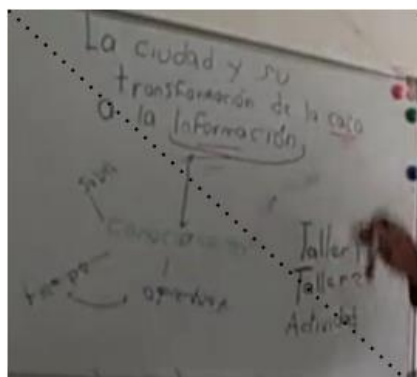 La ciudad y su
transformación de la caca
a la Información
saber
Conocimiento
tiempo
aprendizaje
Taller 1
Taller 2
Actividad